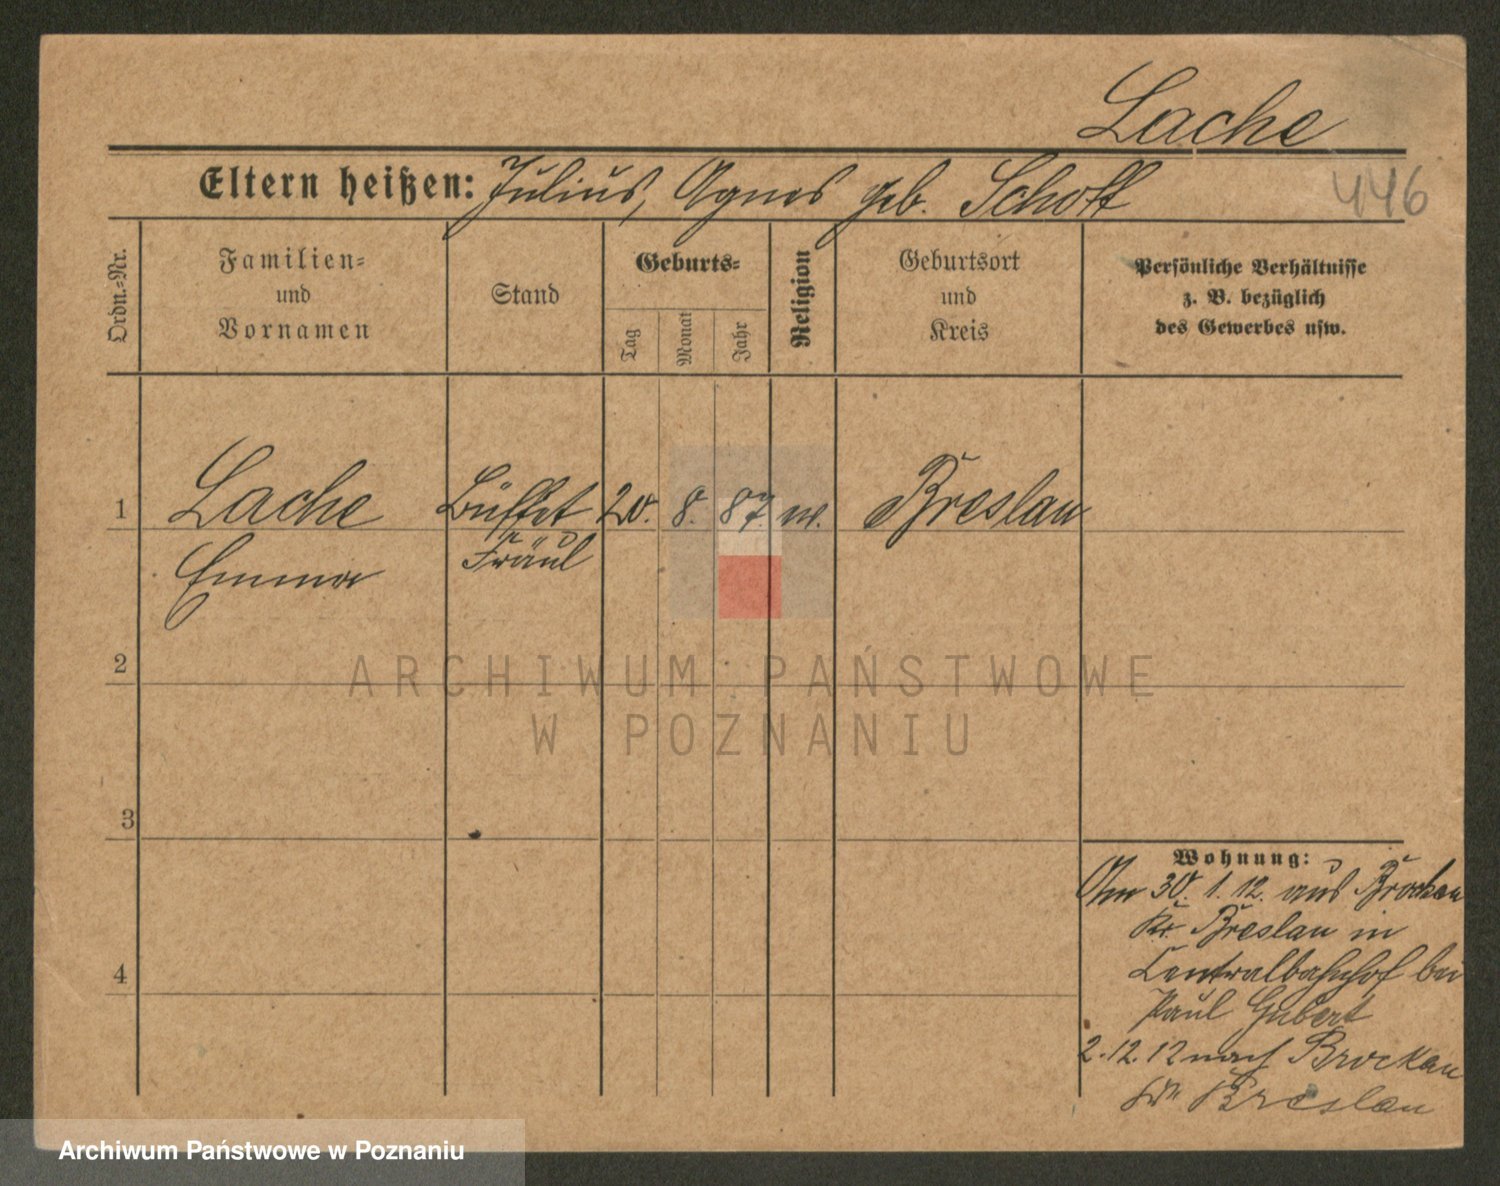 Lache
Eltern heißen: Julius, Agnes geb. Schott
446
Ordn.-Nr.
Familien-
und
Vornamen
Stand
Geburts-
Tag
Monat
Jahr
Religion
Geburtsort
und
Kreis
Persönliche Verhältnisse
z. B. bezüglich
des Gewerbes usw.
1 Lache Büffet 20. 8. 87.
Breslau
Emma Fräul
2
3
4
Wohnung:
Am 30. 1. 12. aus Brockau
Kr. Breslau in
Centralbahnhof bei
Paul
2.12.12 nach Brockau
Kr. Breslau
ARCHIWUM PAŃSTWOWE
W POZNANIU
Archiwum Państwowe w Poznaniu